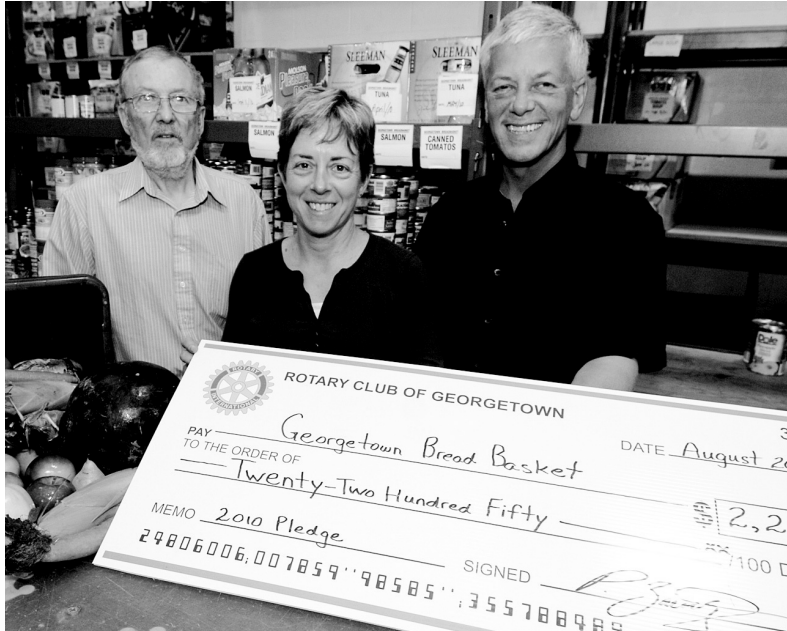 SLEEMAN
SLEEMAN
MOLSON
SALMON
TUNA
TUNA
SALMON
SALMON
CANNED
TOMATOS
Dole
ROTARY
INTERNATIONAL
ROTARY CLUB OF GEORGETOWN
PAY Georgetown Bread Basket
DATE August 20
TO THE ORDER OF
Twenty-Two Hundred Fifty
$ 2,2
/100 D
MEMO 2010 Pledge
SIGNED
24806006:007859''98585'':355788489